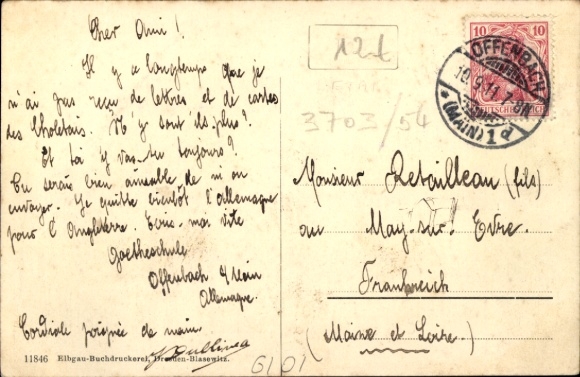 Cher Ami !
Il y a longtemps que je
n'ai pas reçu de lettres et de cartes
des Choletais. N'y sont ils plus?
Et toi y vas-tu toujours?
Tu serais bien aimable de m'en
envoyer. Je quitte bientôt l'allemagne
pour l'Angleterre. Ecris-moi vite
Goetheschule
Offenbach a/Main
Allemagne.
Cordiale poignée de main
11846 Elbgau-Buchdruckerei, Dresden-Blasewitz.
12€
3703/54
10 10
DEUTSCHES REICH
OFFENBACH
10.9.11. 7-8N
* (MAIN) 1 d
Monsieur Retailleau (fils)
au May-sur-Evre.
Frankreich
(Maine et Loire.)
6101